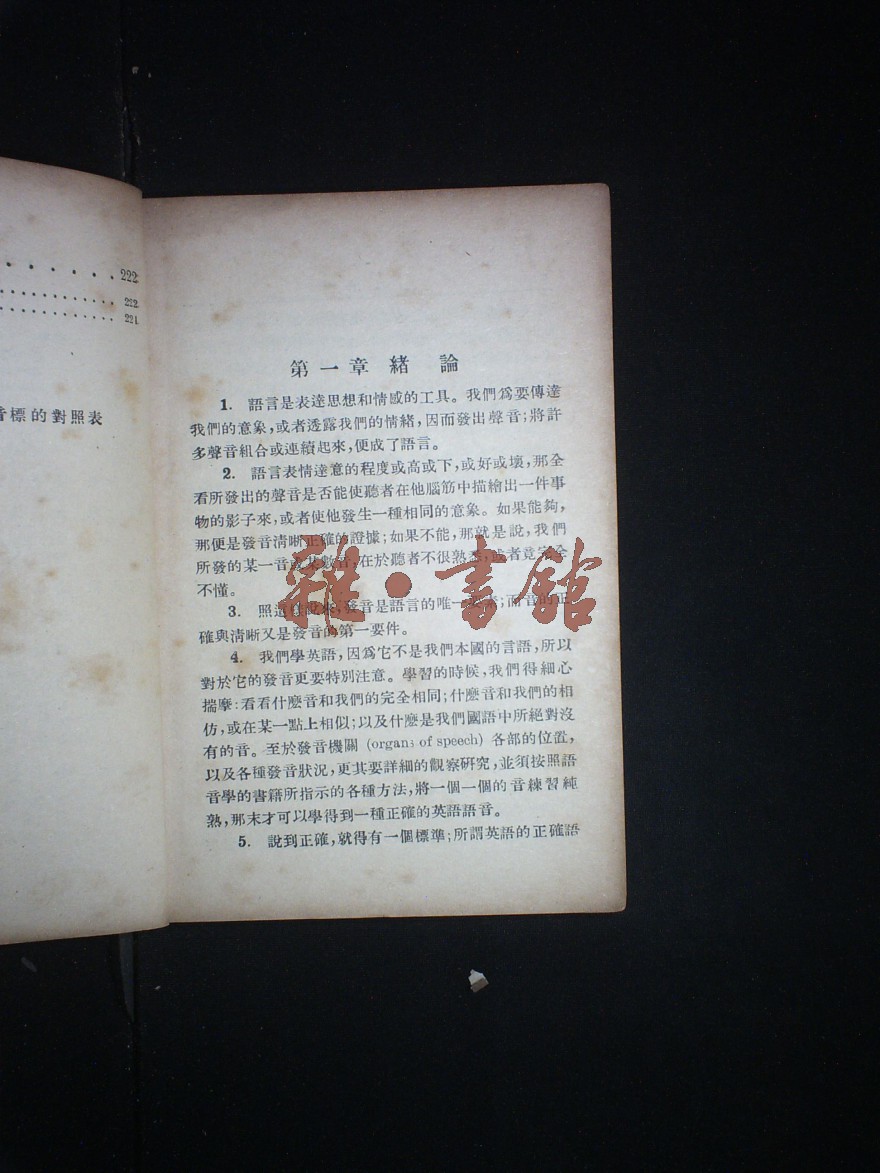 222
222
224
音標的對照表
第一章 緒論
1. 語言是表達思想和情感的工具。我們爲要傳達
我們的意象,或者透露我們的情緒,因而發出聲音;將許
多聲音組合或連續起來,便成了語言。
2. 語言表情達意的程度或高或下,或好或壞,那全
看所發出的聲音是否能使聽者在他腦筋中描繪出一件事
物的影子來,或者使他發生一種相同的意象。如果能夠,
那便是發音清晰正確的證據;如果不能,那就是說,我們
所發的某一音或某數音,在於聽者不很熟悉,或者竟完全
不懂。
3. 照這樣說來,發音是語言的唯一要素;而音的正
確與清晰又是發音的第一要件。
4. 我們學英語,因爲它不是我們本國的言語,所以
對於它的發音更要特別注意。學習的時候,我們得細心
揣摩:看看什麽音和我們的完全相同;什麽音和我們的相
仿,或在某一點上相似;以及什麽是我們國語中所絕對沒
有的音。至於發音機關 (organs of speech) 各部的位置,
以及各種發音狀況,更其要詳細的觀察研究,並須按照語
音學的書籍所指示的各種方法,將一個一個的音練習純
熟,那末才可以學得到一種正確的英語語音。
5. 說到正確,就得有一個標準;所謂英語的正確語
雜·書館